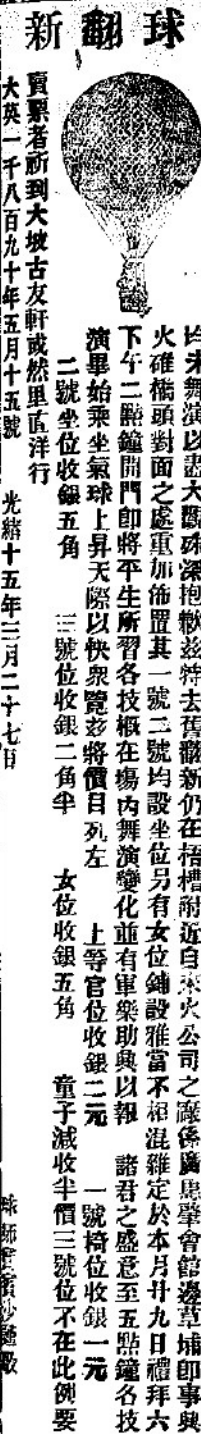 球翻新
均未舞演以盡大觀殊深抱歉茲特去舊翻新仍在梧槽附近自來火公司之
廣惠肇會館邊草埔卽事興
火碓橋頭對面之處重加佈置其一號二號均設坐位另有女位鋪設雅當不相混雜定於本月廿九日禮拜六
下午二點鐘開門卽將平生所習各技概在塲內舞演變化並有軍樂助興以報 諸君之盛意至五點鐘各技
演畢始乘坐氣球上昇天際以快衆覽茲將價目列左 上等官位收銀二元 一號椅位收銀一元
二號坐位收銀五角 三號位收銀二角半 女位收銀五角 童子減收半價三號位不在此例要
賣票者祈到大坡古友軒或然里直洋行
大英一千八百九十年五月十五號 光緒十五年三月二十七日
球師